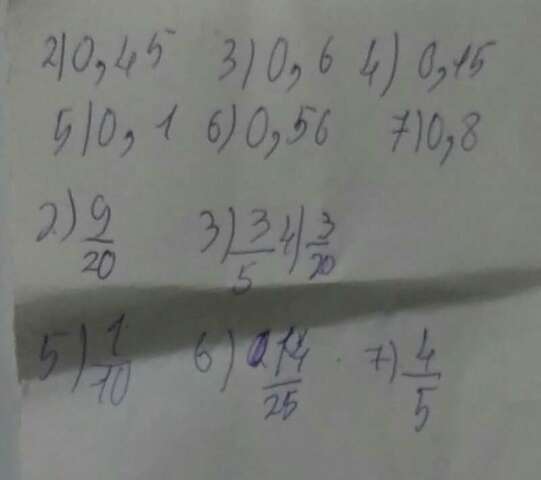 2) 0,45 3) 0,6 4) 0,15
5) 0,1 6) 0,56 7) 0,8
2) 9/20 3) 3/5 4) 3/20
5) 1/10 6) 14/25 7) 4/5